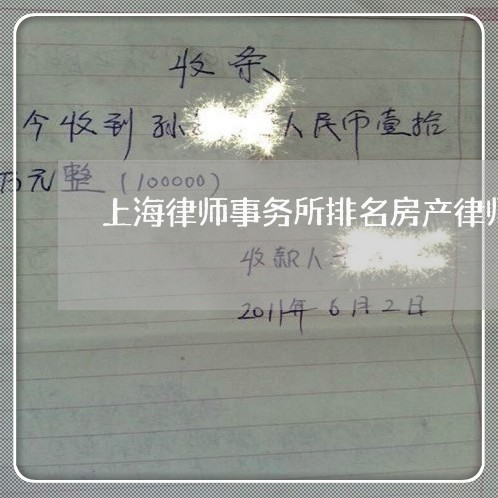 收条
今收到孙 人民币壹拾
万元整(100000)
上海律师事务所排名房产律师
收款人
2011年6月2日